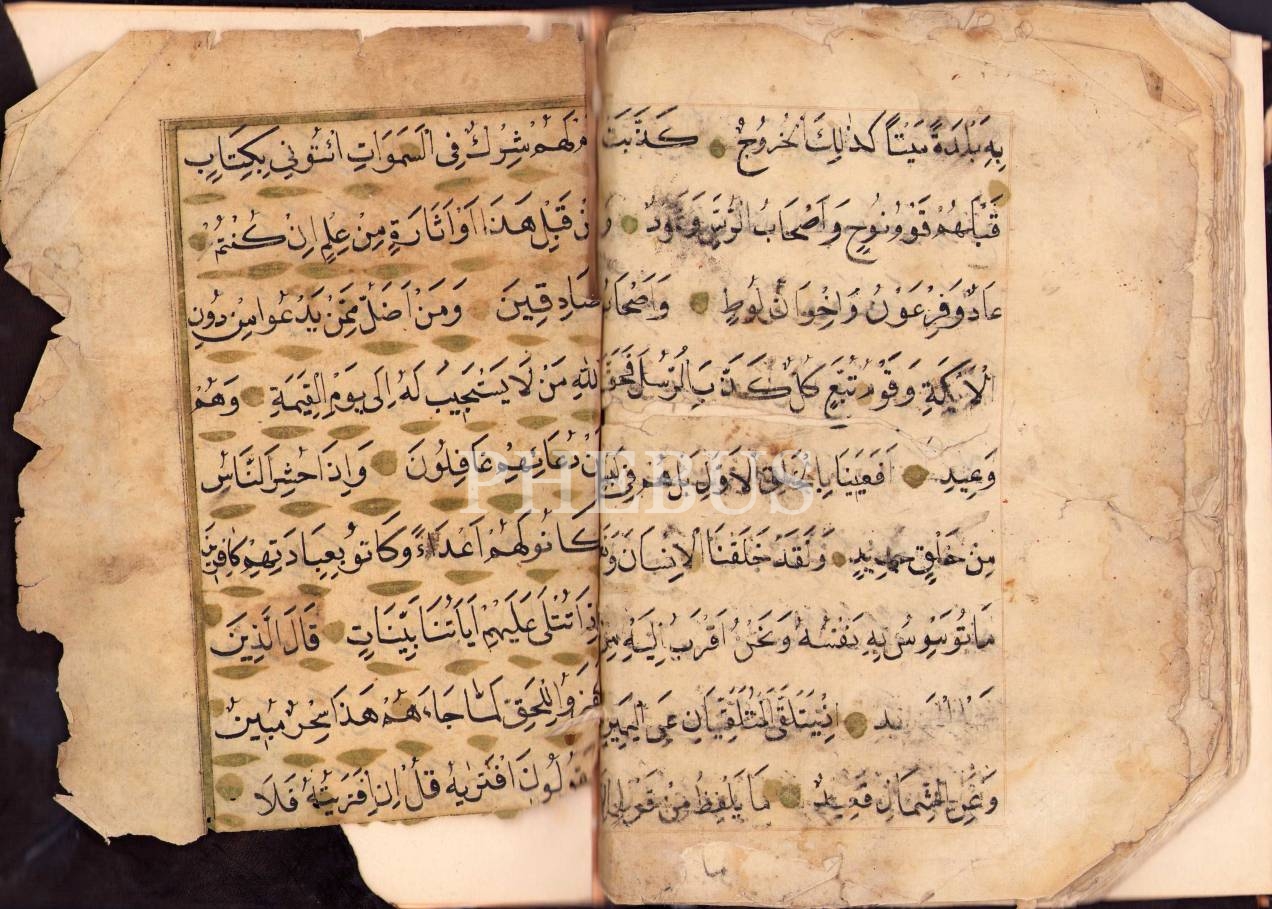 بِهِ بَلْدَةً مَيْتًا كَذٰلِكَ الْخُرُوجُ كَذَّبَتْ
قَبْلَهُمْ قَوْمُ نُوحٍ وَاَصْحَابُ الرَّسِّ وَثَمُودُ
عَادٌ وَفِرْعَوْنُ وَاِخْوَانُ لُوطٍ وَاَصْحَابُ
الْاَيْكَةِ وَقَوْمُ تُبَّعٍ كُلٌّ كَذَّبَ الرُّسُلَ فَحَقَّ
وَعِيدِ اَفَعَيِينَا بِالْخَلْقِ الْاَوَّلِ بَلْ هُمْ فِى لَبْسٍ
مِنْ خَلْقٍ جَدِيدٍ وَلَقَدْ خَلَقْنَا الْاِنْسَانَ
مَا تُوَسْوِسُ بِهِ نَفْسُهُ وَنَحْنُ اَقْرَبُ اِلَيْهِ مِنْ
اِذْ يَتَلَقَّى الْمُتَلَقِّيَانِ عَنِ الْيَمِينِ
وَعَنِ الشِّمَالِ قَعِيدٌ مَا يَلْفِظُ مِنْ قَوْلٍ
لَهُمْ شِرْكٌ فِى السَّمَوَاتِ ائْتُونِى بِكِتَابٍ
مِنْ قَبْلِ هَذَا اَوْ اَثَارَةٍ مِنْ عِلْمٍ اِنْ كُنْتُمْ
صَادِقِينَ وَمَنْ اَضَلُّ مِمَّنْ يَدْعُوا مِنْ دُونِ
اللهِ مَنْ لَا يَسْتَجِيبُ لَهُ اِلَى يَوْمِ الْقِيمَةِ وَهُمْ
عَنْ دُعَائِهِمْ غَافِلُونَ وَاِذَا حُشِرَ النَّاسُ
كَانُوا لَهُمْ اَعْدَاءً وَكَانُوا بِعِبَادَتِهِمْ كَافِرِينَ
تُتْلَى عَلَيْهِمْ اٰيَاتُنَا بَيِّنَاتٍ قَالَ الَّذِينَ
كَفَرُوا لِلْحَقِّ لَمَّا جَاءَهُمْ هَذَا سِحْرٌ مُبِينٌ
افْتَرٰيهُ قُلْ اِنِ افْتَرَيْتُهُ فَلَا
PHEBUS